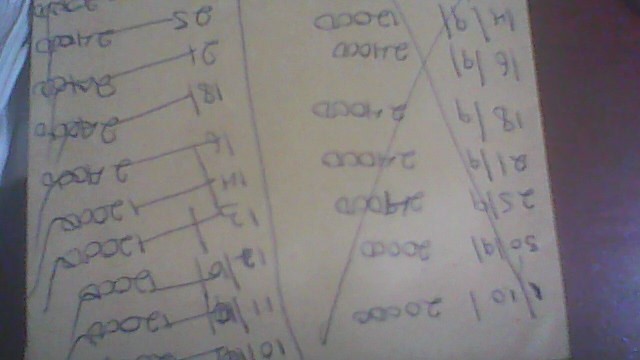 1/10 20000
30/9 20000
25/9 24000
21/9 24000
18/9 24000
16/9 24000
14/9 12000
10/10
11/10 12000
12/10 12000
13 12000
14 12000
16 24000
18 24000
21 24000
25 24000